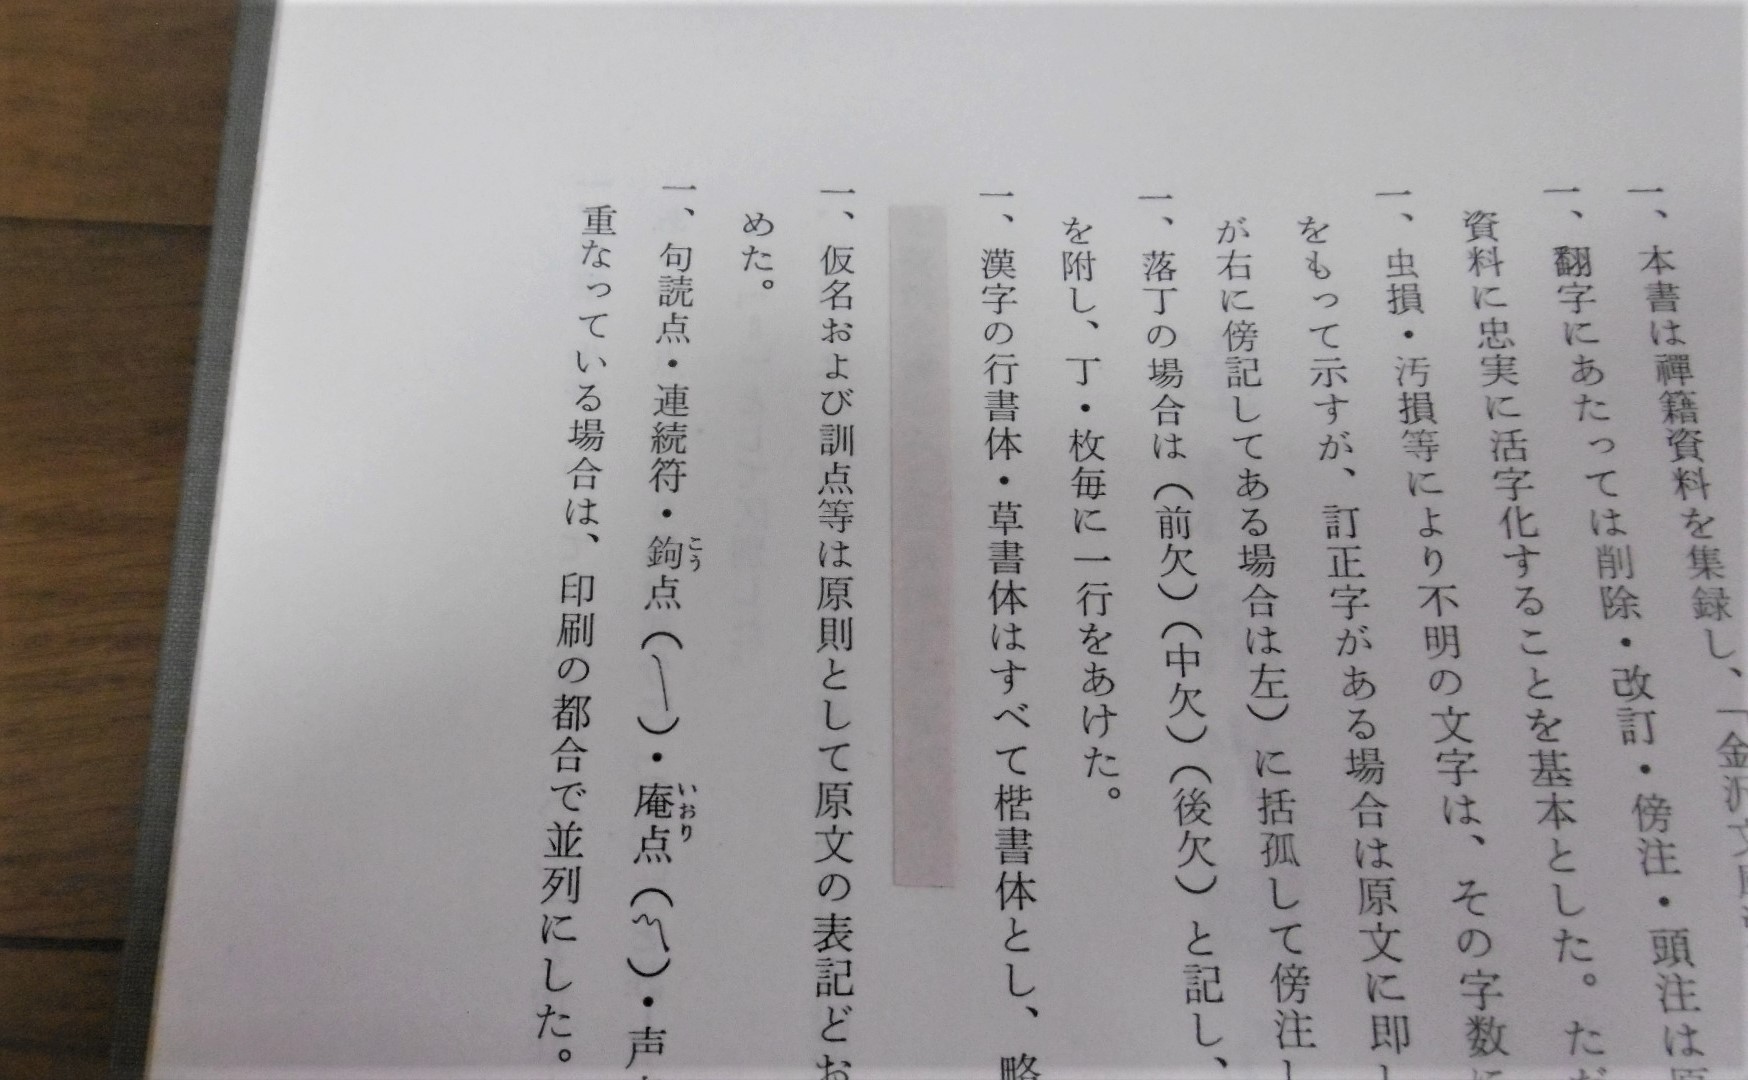 一、本書は禪籍資料を集録し、「金沢文
一、翻字にあたっては削除・改訂・傍注・頭注は原
資料に忠実に活字化することを基本とした。ただ
一、虫損・汚損等により不明の文字は、その字数に
をもって示すが、訂正字がある場合は原文に即し
が右に傍記してある場合は左）に括孤して傍注し
一、落丁の場合は（前欠）（中欠）（後欠）と記し、
を附し、丁・枚毎に一行をあけた。
一、漢字の行書体・草書体はすべて楷書体とし、略
一、仮名および訓点等は原則として原文の表記どお
めた。
一、句読点・連続符・鉤こう点（）・庵いおり点（）・声
重なっている場合は、印刷の都合で並列にした。